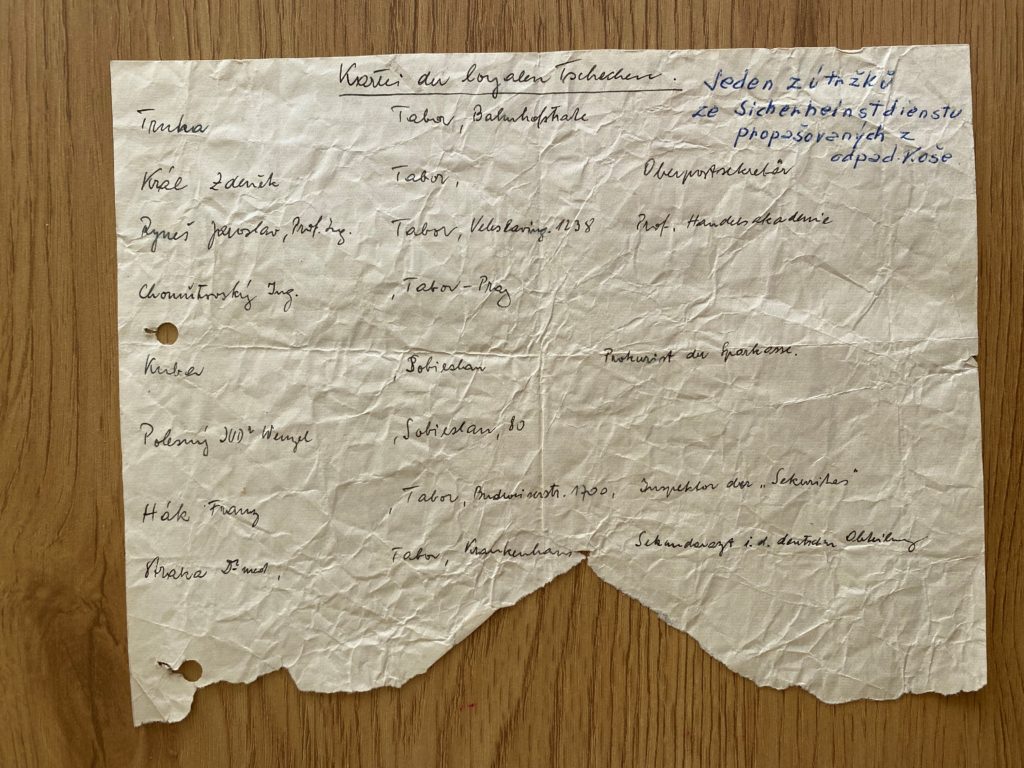 Kartei der loyalen Tschechen.
Jeden z útržků
ze Sicherheinstdienstu
propašovaných z
odpad. koše
Trnka Tabor, Bahnhofstraße
Král Zdeněk Tabor, Oberpostsekretär
Ryneš Jaroslav, Prof. Ing. Tabor, 1238 Prof. Handelsakademie
Ing. , Tabor-Prag
Kuber , Sobieslau Prokurist der Sparkasse.
Polesný JUDr Wenzel , Sobieslau, 80
Hák Franz , Tabor, Budweiserstr. 1700, Inspektor der „Sekuritas"
Straka Dr med, Tabor, Krankenhaus Sekundararzt i. d. deutschen Abteilung